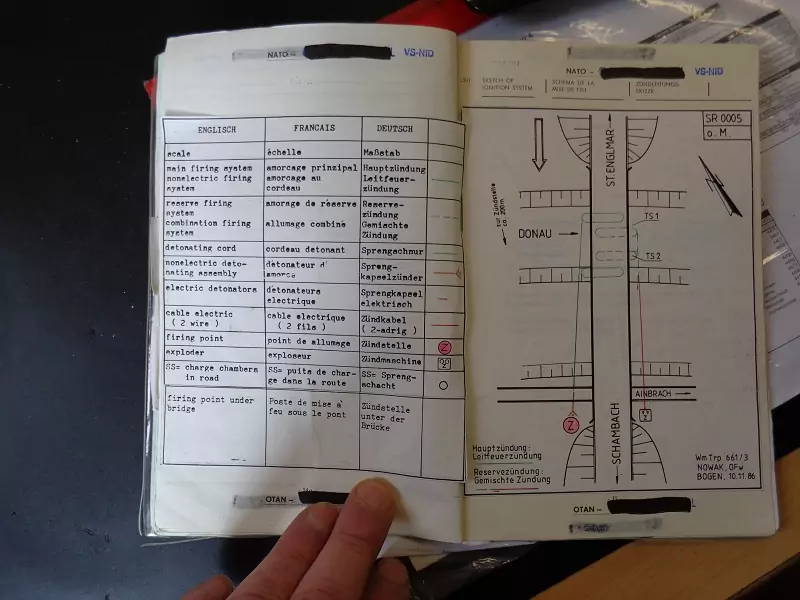 NATO –
VS-NfD
ENGLISCH
FRANCAIS
DEUTSCH
scale
échelle
Maßstab
main firing system
nonelectric firing
system
amorcage prinzipal
amorcage au
cordeau
Hauptzündung
Leitfeuer-
zündung
reserve firing
system
combination firing
system
amorage de réserve
allumage combiné
Reserve-
zündung
Gemischte
Zündung
detonating cord
cordeau detonant
Sprengschnur
nonelectric deto-
nating assembly
détonateur d'
amorce
Spreng-
kapselzünder
electric detonators
détonateurs
electrique
Sprengkapsel
elektrisch
cable electric
( 2 wire )
cable electrique
( 2 fils )
Zündkabel
( 2-adrig )
firing point
point de allumage
Zündstelle
Z
exploder
exploseur
Zündmaschine
2
SS= charge chambers
in road
SS= puits de char-
ge dans la route
SS= Spreng-
schacht
firing point under
bridge
Poste de mise à
feu sous le pont
Zündstelle
unter der
Brücke
OTAN –
NATO –
VS-NfD
SKETCH OF
IGNITION SYSTEM
SCHEMA DE LA
MISE DE FEU
ZÜNDLEITUNGS-
SKIZZE
SR 0005
o. M.
ST. ENGLMAR
zur Zündstelle
ca. 200m
DONAU
TS 1
TS 2
AINBRACH
Z
2
SCHAMBACH
Hauptzündung:
Leitfeuerzündung
Reservezündung:
Gemischte Zündung
WmTrp 661/3
NOWAK, OFw
BOGEN, 10.11.86
OTAN –